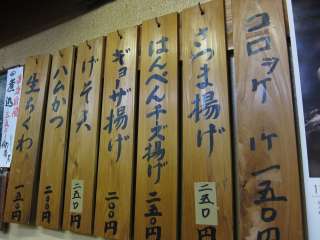 コロッケ 1ケ 一五〇円
さつま揚げ 二五〇円
はんぺんチーズ揚げ 二五〇円
ギョーザ揚げ 二〇〇円
げそ天 二五〇円
ハムかつ 二〇〇円
生ちくわ 一五〇円